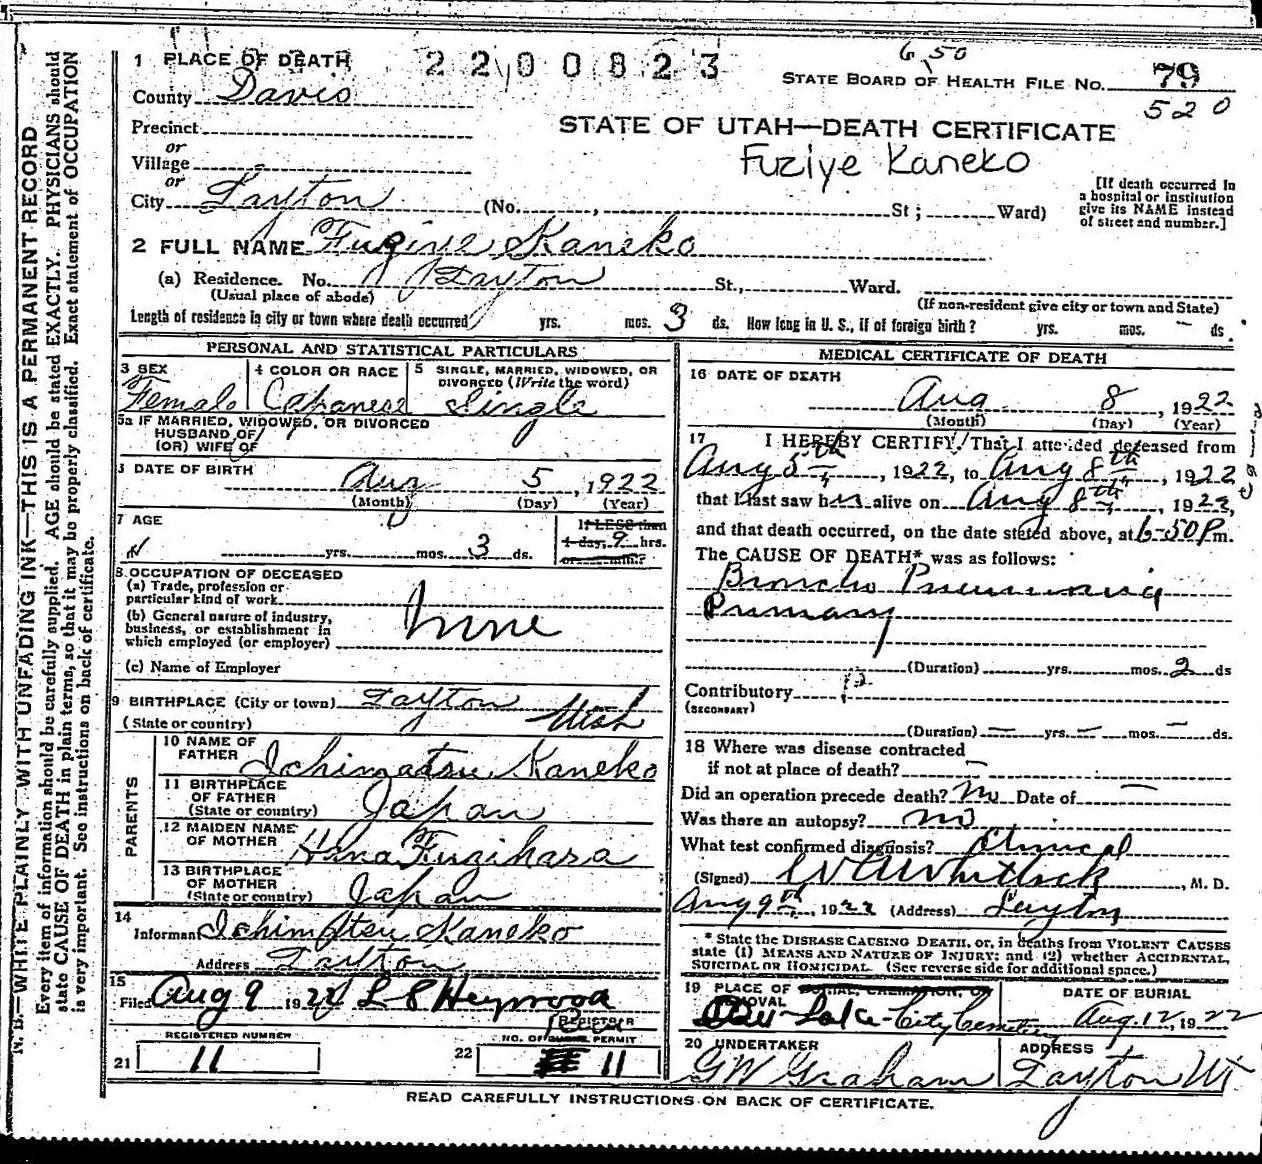 1 PLACE OF DEATH 2200823
6 50
STATE BOARD OF HEALTH FILE No. 79
520
County Davis
Precinct
or
Village
or
City Layton (No. , St ; Ward)
STATE OF UTAH—DEATH CERTIFICATE
Fuziye Kaneko
[If death occurred in
a hospital or institution
give its NAME instead
of street and number.]
2 FULL NAME Fuziye Kaneko
(a) Residence. No. Layton St., Ward.
(Usual place of abode) (If non-resident give city or town and State)
Length of residence in city or town where death occurred yrs. mos. 3 ds. How long in U. S., if of foreign birth? yrs. mos. – ds.
PERSONAL AND STATISTICAL PARTICULARS
3 SEX
Female
4 COLOR OR RACE
Japanese
5 SINGLE, MARRIED, WIDOWED, OR
DIVORCED (Write the word)
Single
5a IF MARRIED, WIDOWED, OR DIVORCED
HUSBAND OF
(OR) WIFE OF
DATE OF BIRTH
Aug 5, 1922
(Month) (Day) (Year)
7 AGE
yrs. mos. 3 ds.
If LESS than
1 day, 9 hrs.
or min.?
8 OCCUPATION OF DECEASED
(a) Trade, profession or
particular kind of work
(b) General nature of industry,
business, or establishment in
which employed (or employer)
None
(c) Name of Employer
9 BIRTHPLACE (City or town) Layton
(State or country) Utah
PARENTS
10 NAME OF
FATHER Ichimatsu Kaneko
11 BIRTHPLACE
OF FATHER
(State or country) Japan
12 MAIDEN NAME
OF MOTHER Hina Fugihara
13 BIRTHPLACE
OF MOTHER
(State or country) Japan
14
Informant Ichimatsu Kaneko
Address Layton
15
Filed Aug 9 1922 L S Heywood
REGISTRAR
REGISTERED NUMBER
21 11
NO. OF PERMIT
22 11
MEDICAL CERTIFICATE OF DEATH
16 DATE OF DEATH
Aug 8, 1922
(Month) (Day) (Year)
17 I HEREBY CERTIFY, That I attended deceased from
Aug 5th, 1922, to Aug 8th, 1922
that I last saw her alive on Aug 8th, 1922,
and that death occurred, on the date stated above, at 6-50 P m.
The CAUSE OF DEATH* was as follows:
Broncho Pneumonia
Primary
(Duration) yrs. mos. 2 ds
Contributory
(SECONDARY)
(Duration) — yrs. — mos. — ds.
18 Where was disease contracted
if not at place of death? —
Did an operation precede death? No Date of —
Was there an autopsy? no
What test confirmed diagnosis? Clinical
(Signed) Whitlock, M. D.
Aug 9th, 1922 (Address) Layton
* State the DISEASE CAUSING DEATH, or, in deaths from VIOLENT CAUSES
state (1) MEANS AND NATURE OF INJURY; and (2) whether ACCIDENTAL,
SUICIDAL OR HOMICIDAL. (See reverse side for additional space.)
19 PLACE OF BURIAL, CREMATION, OR
REMOVAL
Lake City Cemetery
DATE OF BURIAL
Aug. 12, 1922
20 UNDERTAKER
GW Graham
ADDRESS
Layton Ut
READ CAREFULLY INSTRUCTIONS ON BACK OF CERTIFICATE.
N. B.—WRITE PLAINLY WITH UNFADING INK—THIS IS A PERMANENT RECORD
Every item of information should be carefully supplied. AGE should be stated EXACTLY. PHYSICIANS should
state CAUSE OF DEATH in plain terms, so that it may be properly classified. Exact statement of OCCUPATION
is very important. See instructions on back of certificate.